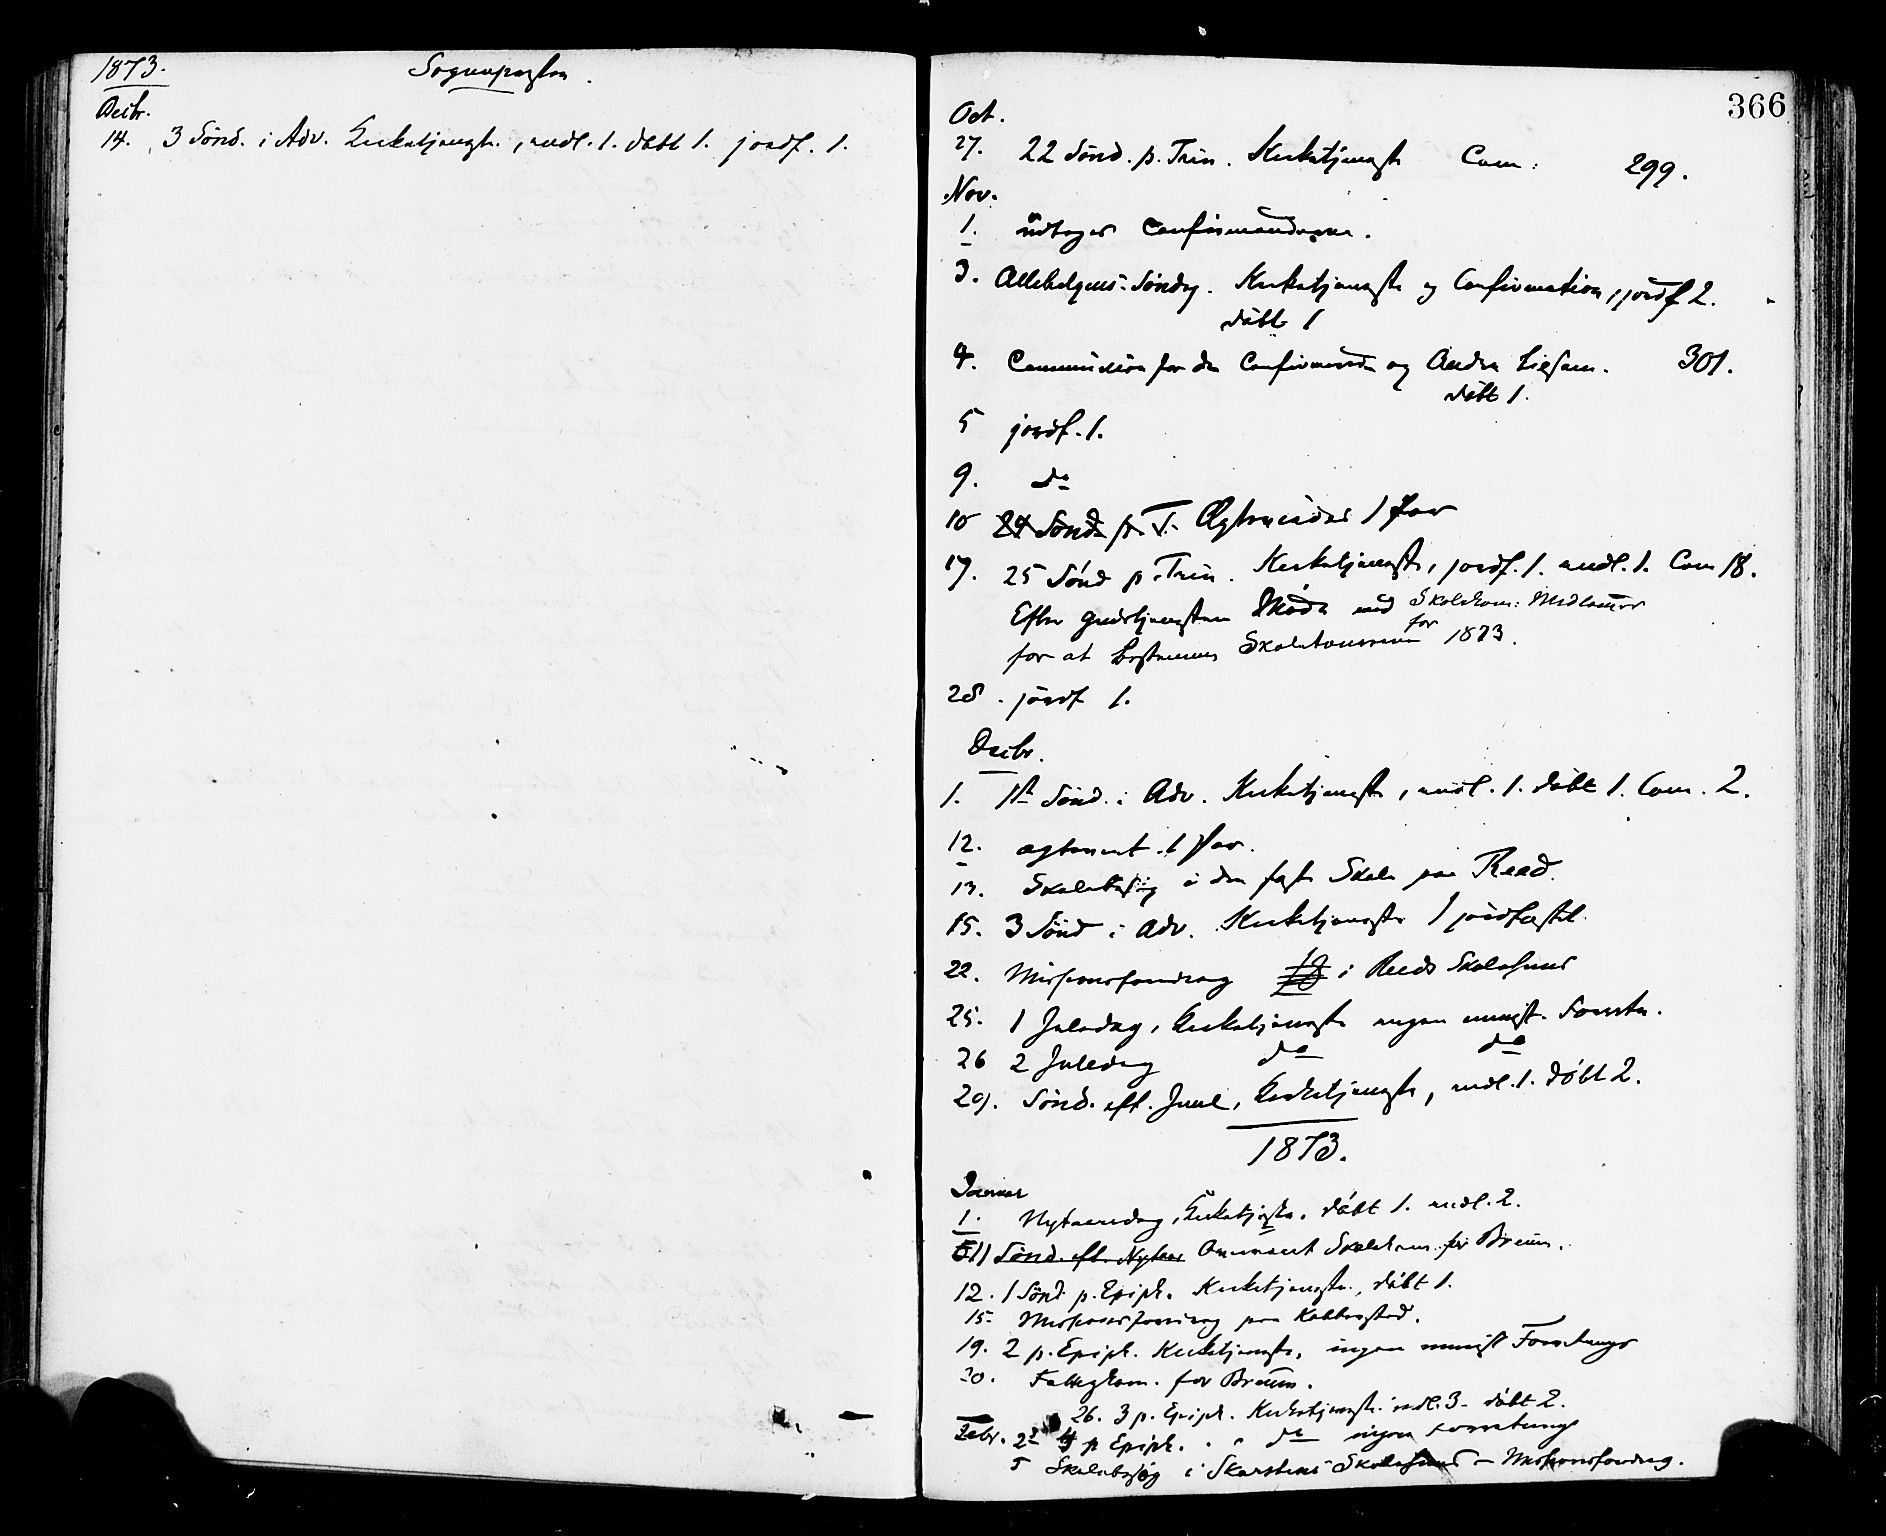 1873.
Sognepresten.
Decbr.
14. 3 Sönd. i Adv. Kirketjeneste, indl. 1. döbt 1. jordf. 1.
366
Oct.
27. 22 Sönd. p. Trin. Kirketjeneste Com: 299.
Nov.
1. udtoges Confirmanderne.
3. Allehelgens-Söndag. Kirketjeneste og Confirmation, jordf 2.
döbt 1
4. Communion for de Confirmerede og Andre ligesom. 301.
döbt 1.
5 jordf. 1.
9. do
10 24 Sönd. p. T. Ægteviedes 1 Par
17. 25 Sönd p. Trin. Kirketjeneste, jordf. 1. indl. 1. Com 18.
Efter gudstjenesten Möde med Skolekom: Medlemmer
for at bestemme Skoletourene for 1873.
28. jordf 1.
Decbr.
1. 1ste Sönd. i Adv. Kirketjeneste, indl. 1. döbt 1. Com. 2.
12. ægteviet 1 Par.
13. Skolebesög i den faste Skole paa Reed.
15. 3 Sönd i Adv. Kirketjeneste 1 jordfæstet.
22. Missionsforedrag i Reeds Skolehuus
25. 1 Juledag, Kirketjeneste ingen minist. Forretn.
26 2 Juledag do do
29. Sönd. eft. Juul, Kirketjeneste, indl. 1. döbt 2.
1873.
Januar
1. Nytaarsdag, Kirketjeste. döbt 1. indl. 2.
11 Sönd. eft. Nytaar Skolekom. for Breim.
12. 1 Sönd p. Epiph. Kirketjeneste, döbt 1.
15. Missionsforedrag paa
19. 2 p. Epiph. Kirketjeneste, ingen minist Forretninger
20. Fattigkom. for Breim.
26. 3 p. Epiph. Kirketjeneste indl. 3 - döbt 2.
Febr. 2 4 p Epiph. do ingen Forretning
5 Skolebesög i Skarsteins Skolehuus - Missionsforedrag.